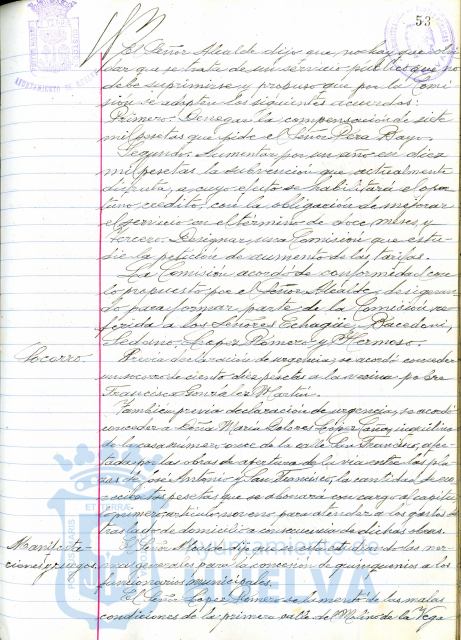 53
El Señor Alcalde dijo que, no hay que olvi-
dar que se trata de un servicio público que no
debe suprimirse y propuso que por la Comi-
sión se adopten los siguientes acuerdos:
Primero. Denegar la compensación de siete
mil pesetas que pide el Señor Pera Bayo.
Segundo. Aumentar por un año en diez
mil pesetas la subvención que actualmente
disfruta, a cuyo efecto se habilitará el opor-
tuno crédito, con la obligación de mejorar
el servicio en el término de doce meses, y
Tercero. Designar una Comisión que estu-
die la petición de aumento de las tarifas.
La Comisión acordó de conformidad con
lo propuesto por el Señor Alcalde, designan-
do para formar parte de la Comisión re-
ferida a los Señores Echagüe, Bacedoni,
Sedano, López Romero y Hermoso.
Socorro.
Previa declaración de urgencia, se acordó conceder
un socorro de ciento diez pesetas a la vecina pobre
Francisca González Martín.
También previa declaración de urgencia, se acordó
conceder a Doña María Dolores López inquilina
de la casa número once de la calle San Francisco, afec-
tada por las obras de apertura de la vía entre las pla-
zas de José Antonio y San Francisco, la cantidad de
pesetas que se abonará con cargo al capítulo
primero, artículo noveno para atender a los gastos de
traslado de domicilio a consecuencia de dichas obras.
Manifesta-
ciones y ruegos.
El Señor Alcalde dijo que se están estudiando las nor-
mas generales para la concesión de quinquenios a los
funcionarios municipales.
El Señor López Romero se lamentó de las malas
condiciones de la primera calle del Molino de la Vega
AYUNTAMIENTO DE HUELVA
Ayuntamiento de
HUELVA